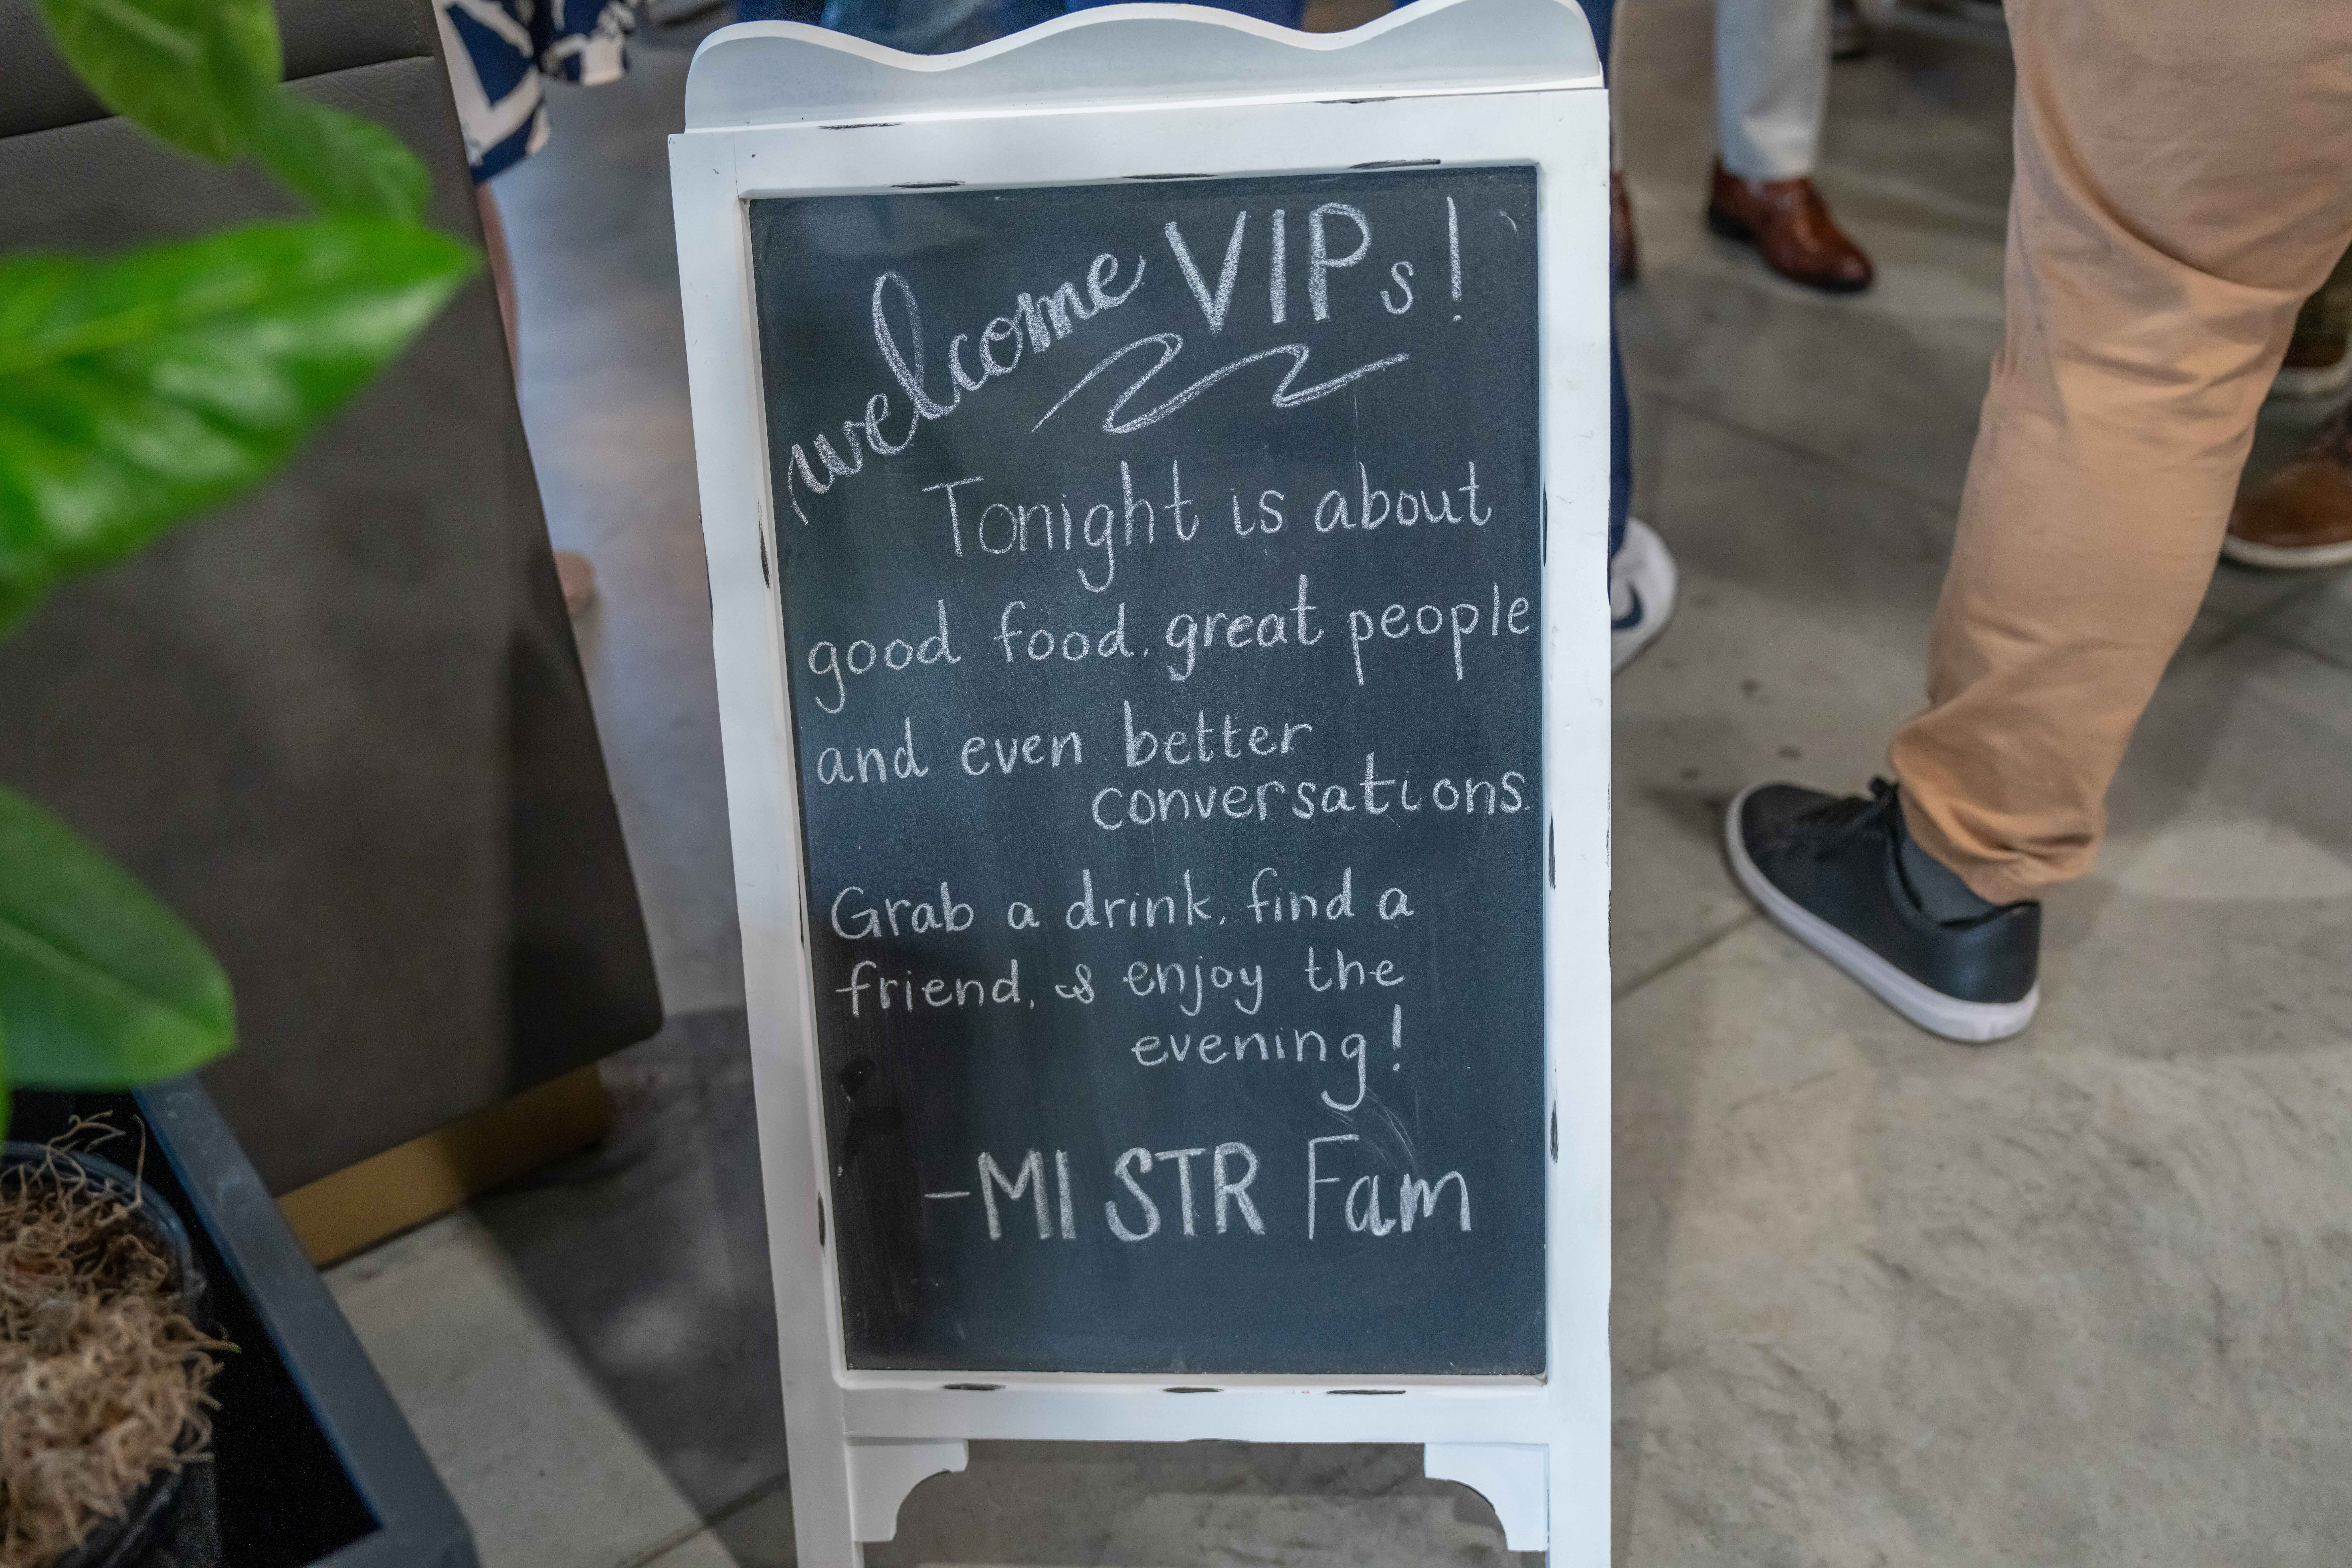 welcome VIPs!
Tonight is about
good food, great people
and even better
conversations.
Grab a drink, find a
friend, & enjoy the
evening!
-MI STR Fam